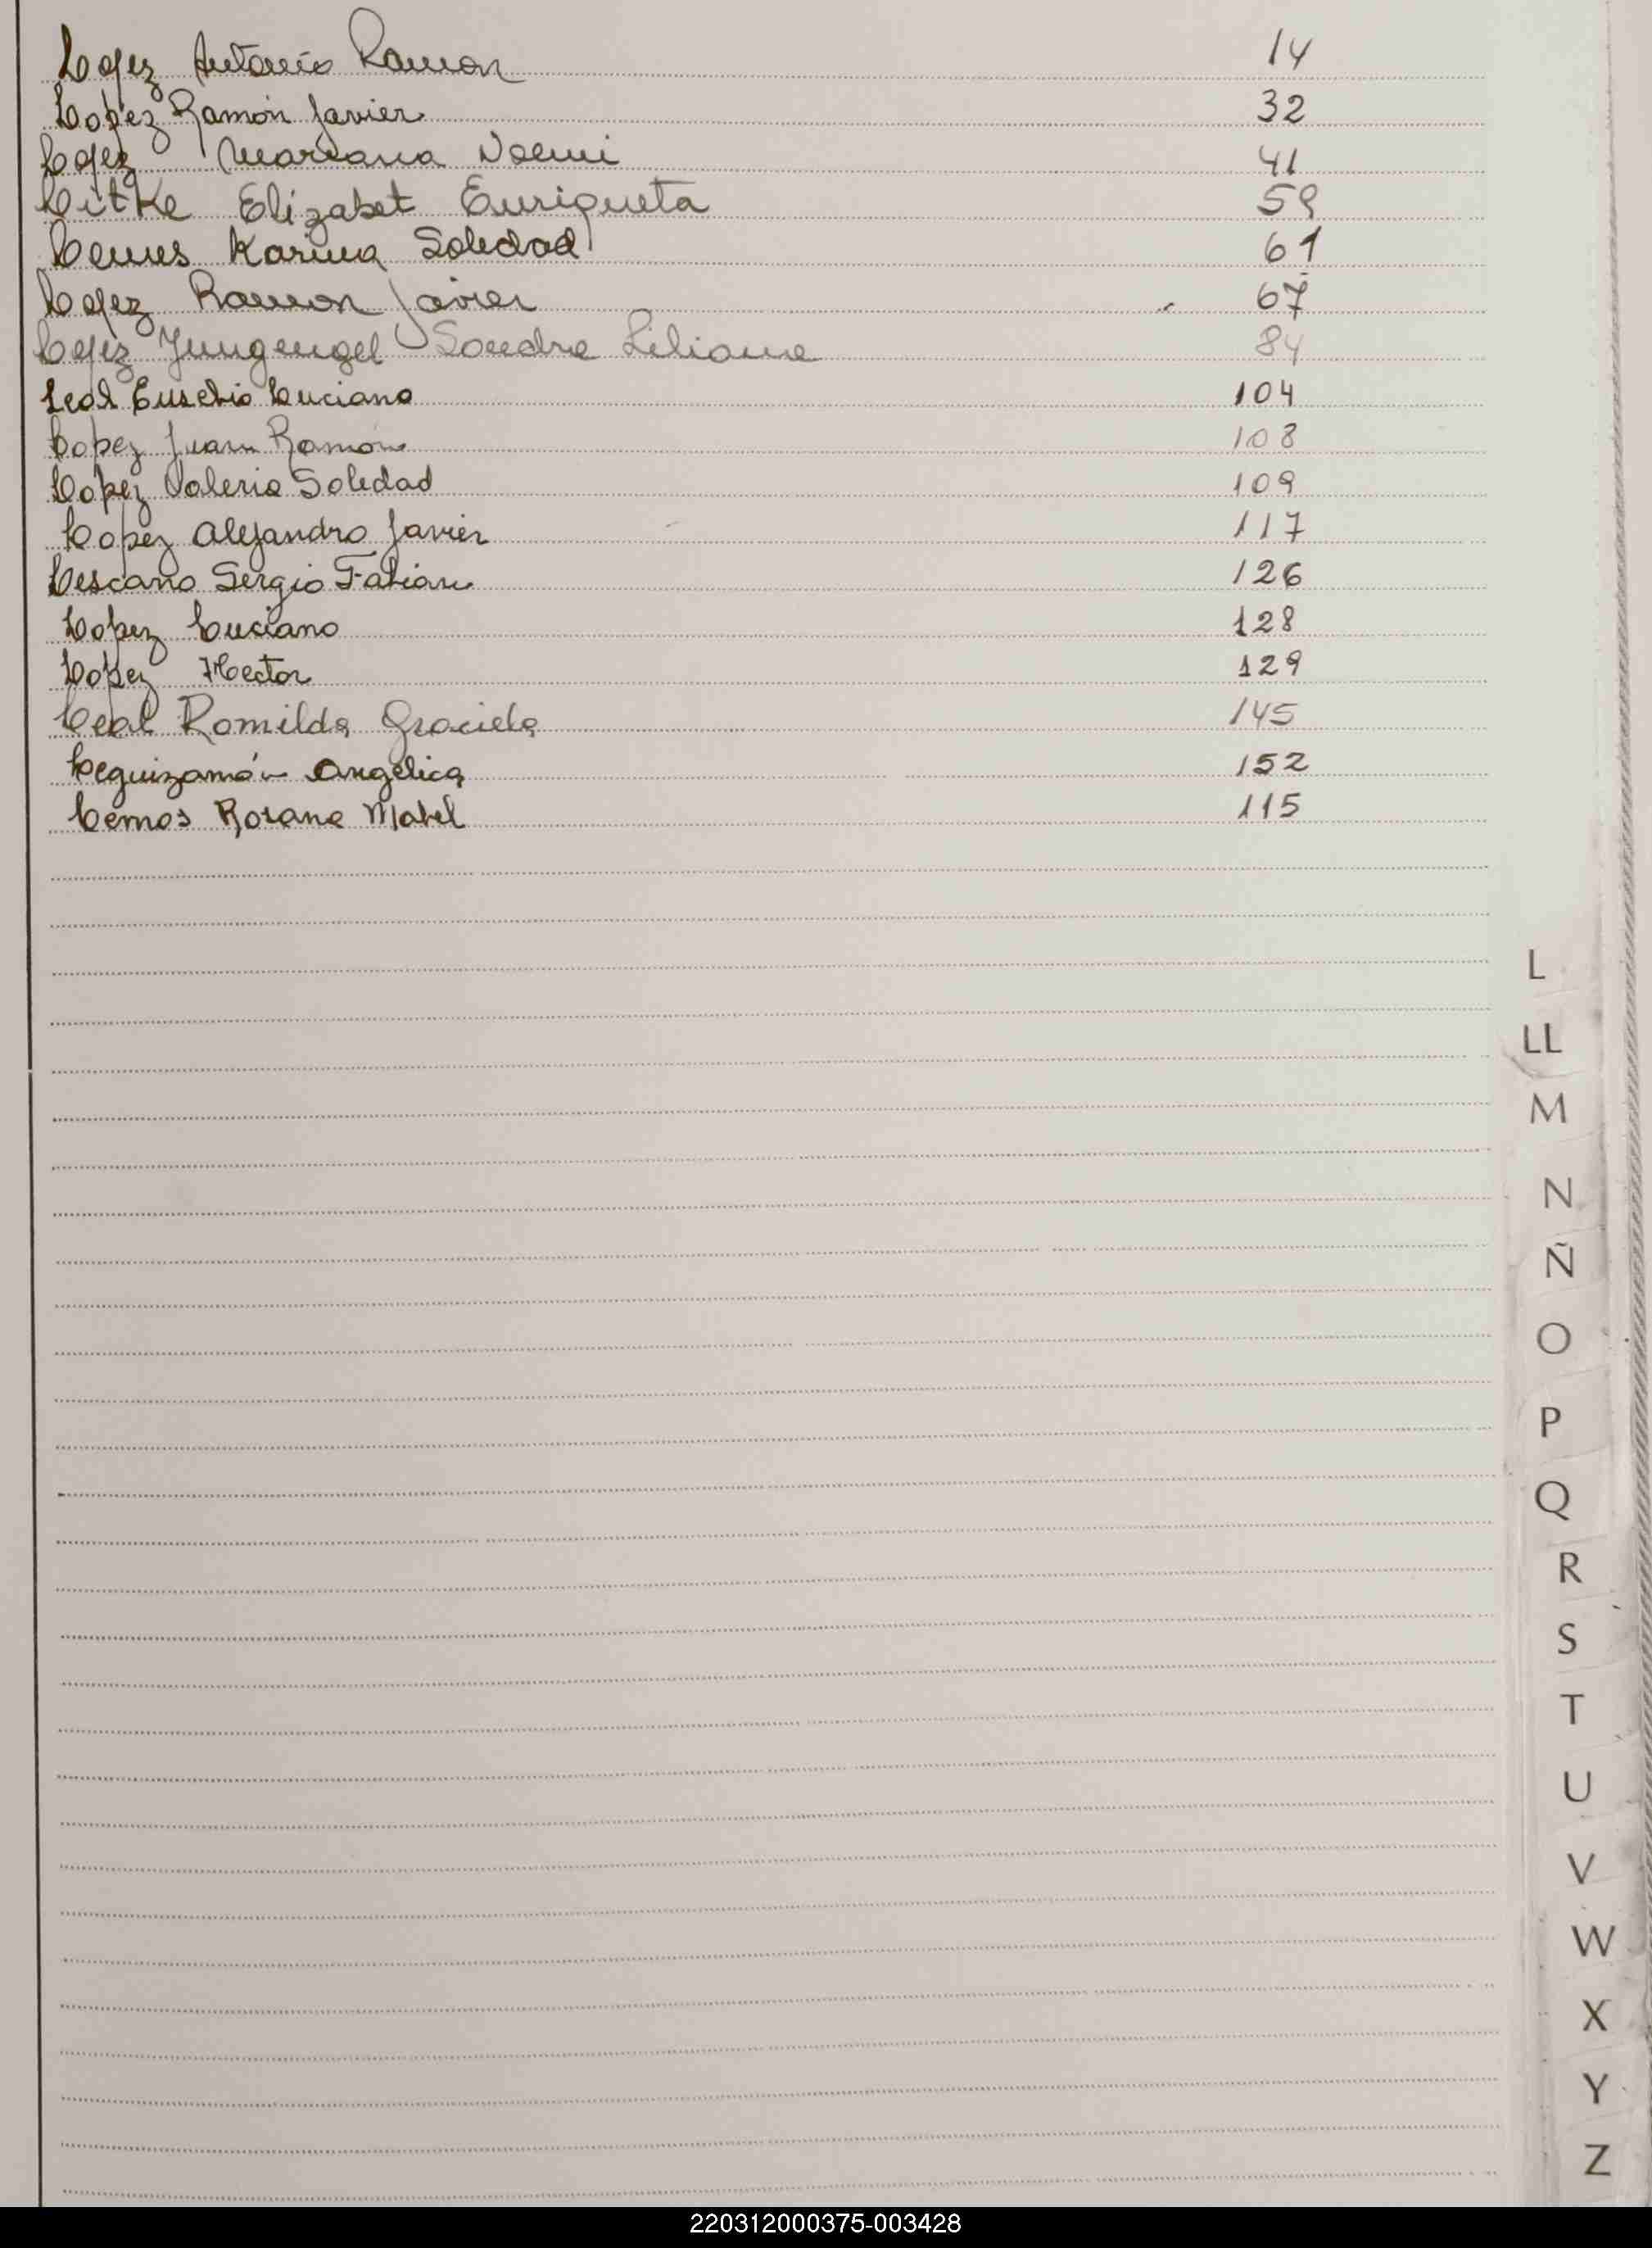 Lopez Antonio Ramon 14
Lopez Ramón Javier 32
Lopez Mariana Noemi 41
Litke Elizabet Enriqueta 59
Lemes Karina Soledad 61
Lopez Ramon Javier 67
Lopez Jungengel Sandra Liliana 84
Leal Eusebio Luciano 104
Lopez Juan Ramón 108
Lopez Valeria Soledad 109
Lopez Alejandro Javier 117
Lescano Sergio Fabian 126
Lopez Luciano 128
Lopez Hector 129
Leal Romilda Graciela 145
Leguizamón Angélica 152
Lemos Rosana Mabel 115
L
LL
M
N
Ñ
O
P
Q
R
S
T
U
V
W
X
Y
Z
220312000375-003428